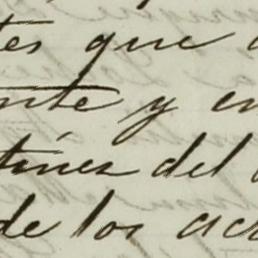 tes que
ente y en
tines del
de los acr